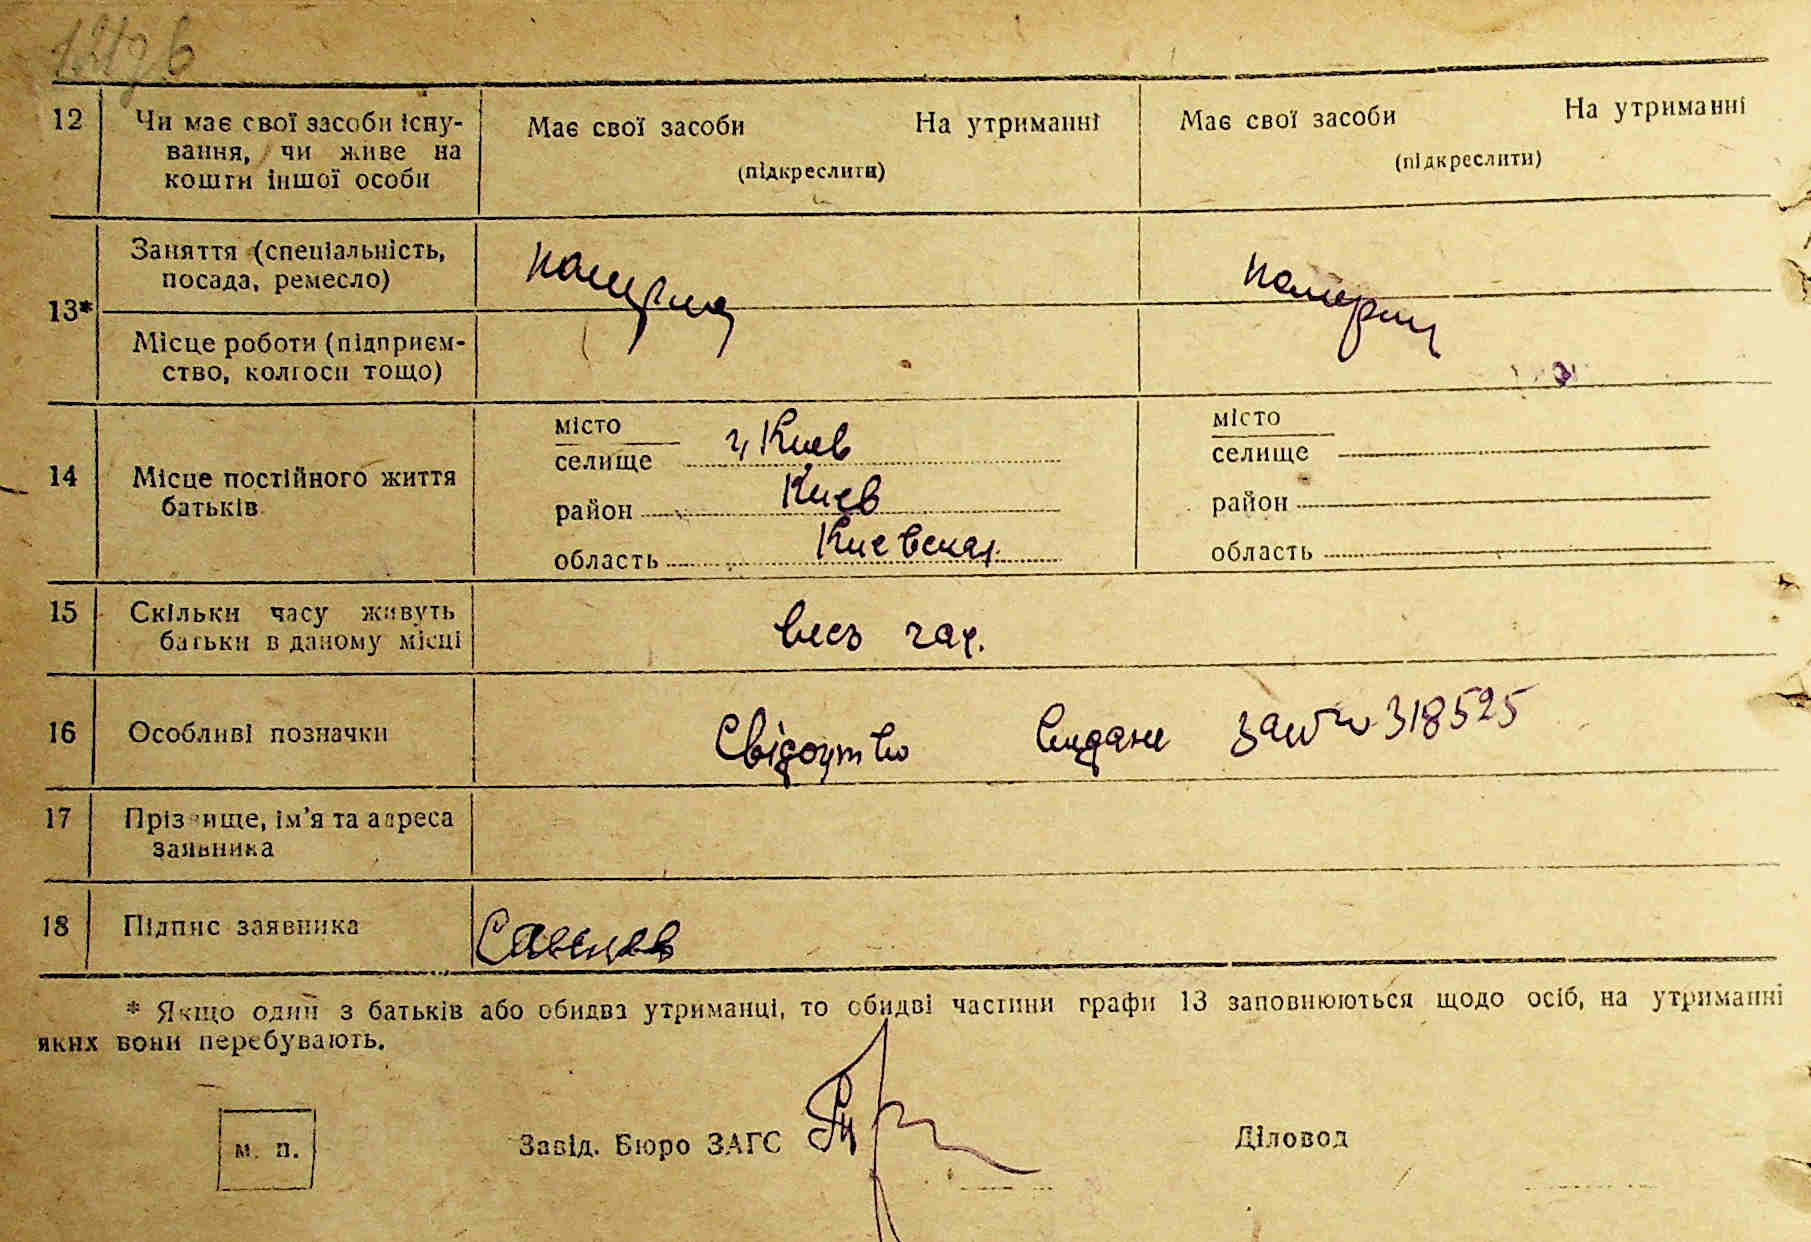 12 Чи має свої засоби існу-
вання, чи живе на
кошти іншої особи
Має свої засоби На утриманні
(підкреслити)
Має свої засоби На утриманні
(підкреслити)
13*
Заняття (спеціальність,
посада, ремесло)
Місце роботи (підприєм-
ство, колгосп тощо)
14 Місце постійного життя
батьків
місто
селище г. Киев
район Киев
область Киевская
місто
селище
район
область
15 Скільки часу живуть
батьки в даному місці
весь час.
16 Особливі позначки
Свідоцтво видане 318525
17 Прізвище, ім'я та адреса
заявника
18 Підпис заявника
* Якщо один з батьків або обидва утриманці, то обидві частини графи 13 заповнюються щодо осіб, на утриманні
яких вони перебувають.
м. п.
Завід. Бюро ЗАГС
Діловод